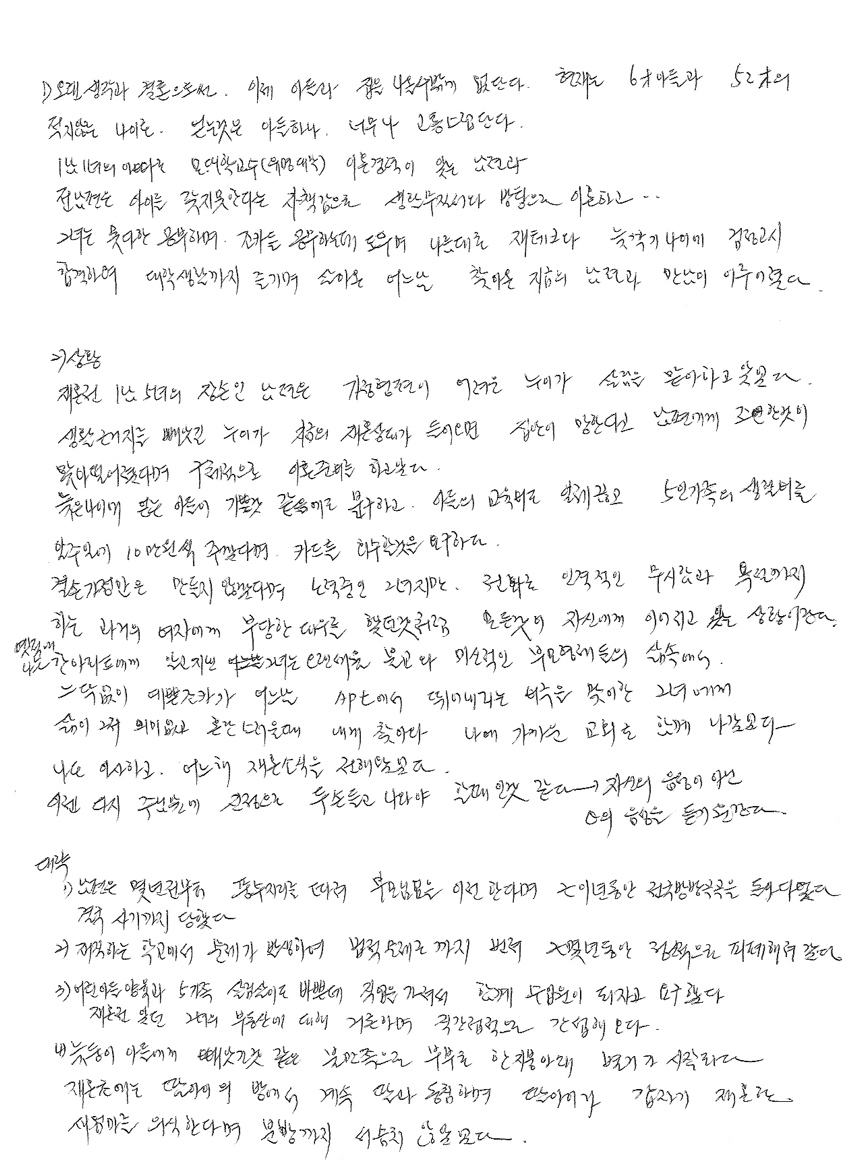 1) 오랜 생각과 결론으로써. 이제 아들과 집을 나올수밖에 없단다. 현재는 6才아들과 52才의
적지않은 나이로. 얻는것은 아들하나. 너무나 고통스럽단다.
1남1녀의 모대학교수(유명대학) 이혼경력이 있는 남편과
전남편은 아이를 갖지못한다는 자책감으로 생활무질서다 방탕으로 이혼하고 ··
그녀는 못다한 공부하며. 조카들 공부하는데 도우며 나름대로 재테크다 늦깎기나이에 검정고시
합격하여 대학생활까지 즐기며 살아온 어느날 찾아온 지금의 남편과 만남이 이루어졌다.
2) 상황
재혼전 1남 5녀의 장손인 남편은 가정형편이 어려운 누이가 살림을 맡아하고 있었다.
생활근거지를 빼앗긴 누이가 재혼상대가 들어오면 집안이 망한다고 남편에게 조언한것이
맞아떨어졌다며 구체적으로 이혼준비를 하고있다.
늦은나이에 얻은 아들이 기쁠것 같음에도 불구하고. 아들의 교육비도 일체끊고 5인가족의 생활비를
일주일에 10만원씩 주겠다며. 카드를 회수할것을 요구하다.
결손가정만은 만들지 않겠다며 노력중인 그녀지만. 전화로 인격적인 무시함과 폭언까지
하는 과거의 여자에게 부당한 대우를 했던것처럼 모든것이 자신에게 이어지고 있는 상황이란다.
옛집에 나는 한아파트에 알고지낸 그녀는 오랜세월 불교와 미신적인 부모형제들의 삶속에서.
느닷없이 예쁜조카가 어느날 APT에서 뛰어내리는 비극을 맞이한 그녀에게
삶이 그저 의미없고 혼란스러울때 내게 찾아와 나에 가까운 교회를 함께 나갔었다
나도 이사하고. 어느해 재혼소식을 전해왔었다.
이젠 다시 주님앞에 진정으로 두손들고 나와야 할때인것 같다 → 자신의 음성이 아닌
○의 음성을 듣기 원한다.
대략
1) 남편은 몇년전부터 풍수지리를 따져 부모님묘를 이전한다며 之이년동안 전국방방곡곡을 돌아다녔다
결국 사기까지 당했다
2) 재직하는 학교에서 문제가 발생하여 법적문제로까지 번져 之몇년동안 정신적으로 피폐해져 갔다
3) 어린아들양육과 5가족 살림살이도 바쁜데 직업을 가져서 함께 수입원이 되자고 요구했다
재혼전 있던 그녀의 부동산에 대해 거론하며 직간접적으로 간섭해오다.
4) 늦둥이 아들에게 빼앗긴것 같은 불만족으로 부부로 한지붕아래 별거가 시작되다
재혼초에는 딸아이의 방에서 계속 딸과 동침하며 딸아이가 갑자기 재혼한
새엄마를 의식한다며 분방까지 서슴치 않았었다.